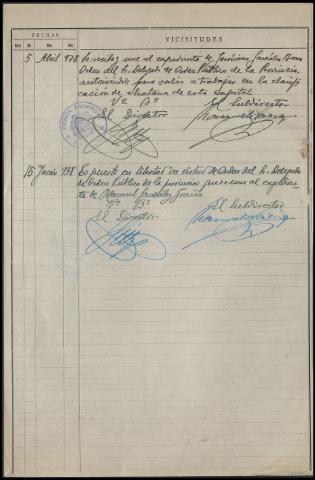 FECHAS
VICISITUDES
5 Abril 938 Se recibe, une al expediente de
Orden del Sr. Delegado de Orden Público de la Provincia,
autorizando para salir a trabajar en la clasifi
cación de chatarra de esta Capital
Vº Bº El Subdirector
El Director
15 Junio 938 Es puesto en libertad en virtud de Orden del Sr. Delegado
de Orden Público de la provincia que se une al expedien
te de Manuel García
Vº Bº El Subdirector
El Director